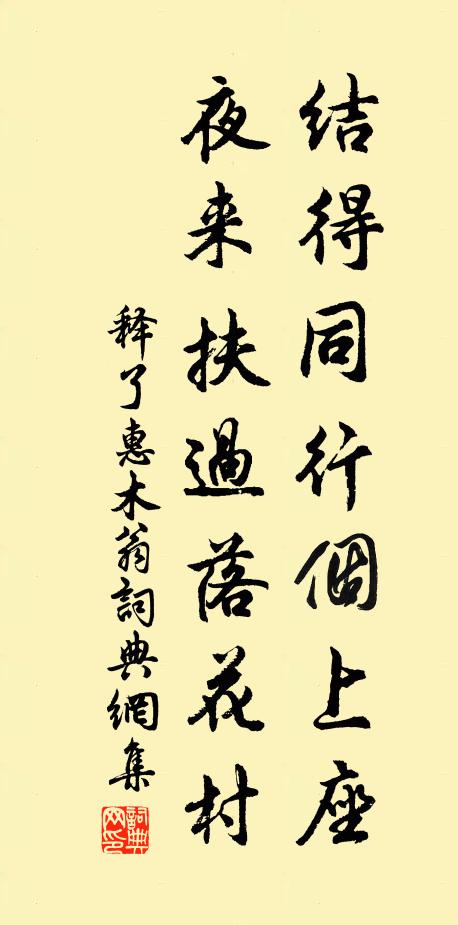 结得同行個上座
夜来扶過落花村
释了惠木翁詞典網集
詞典网印